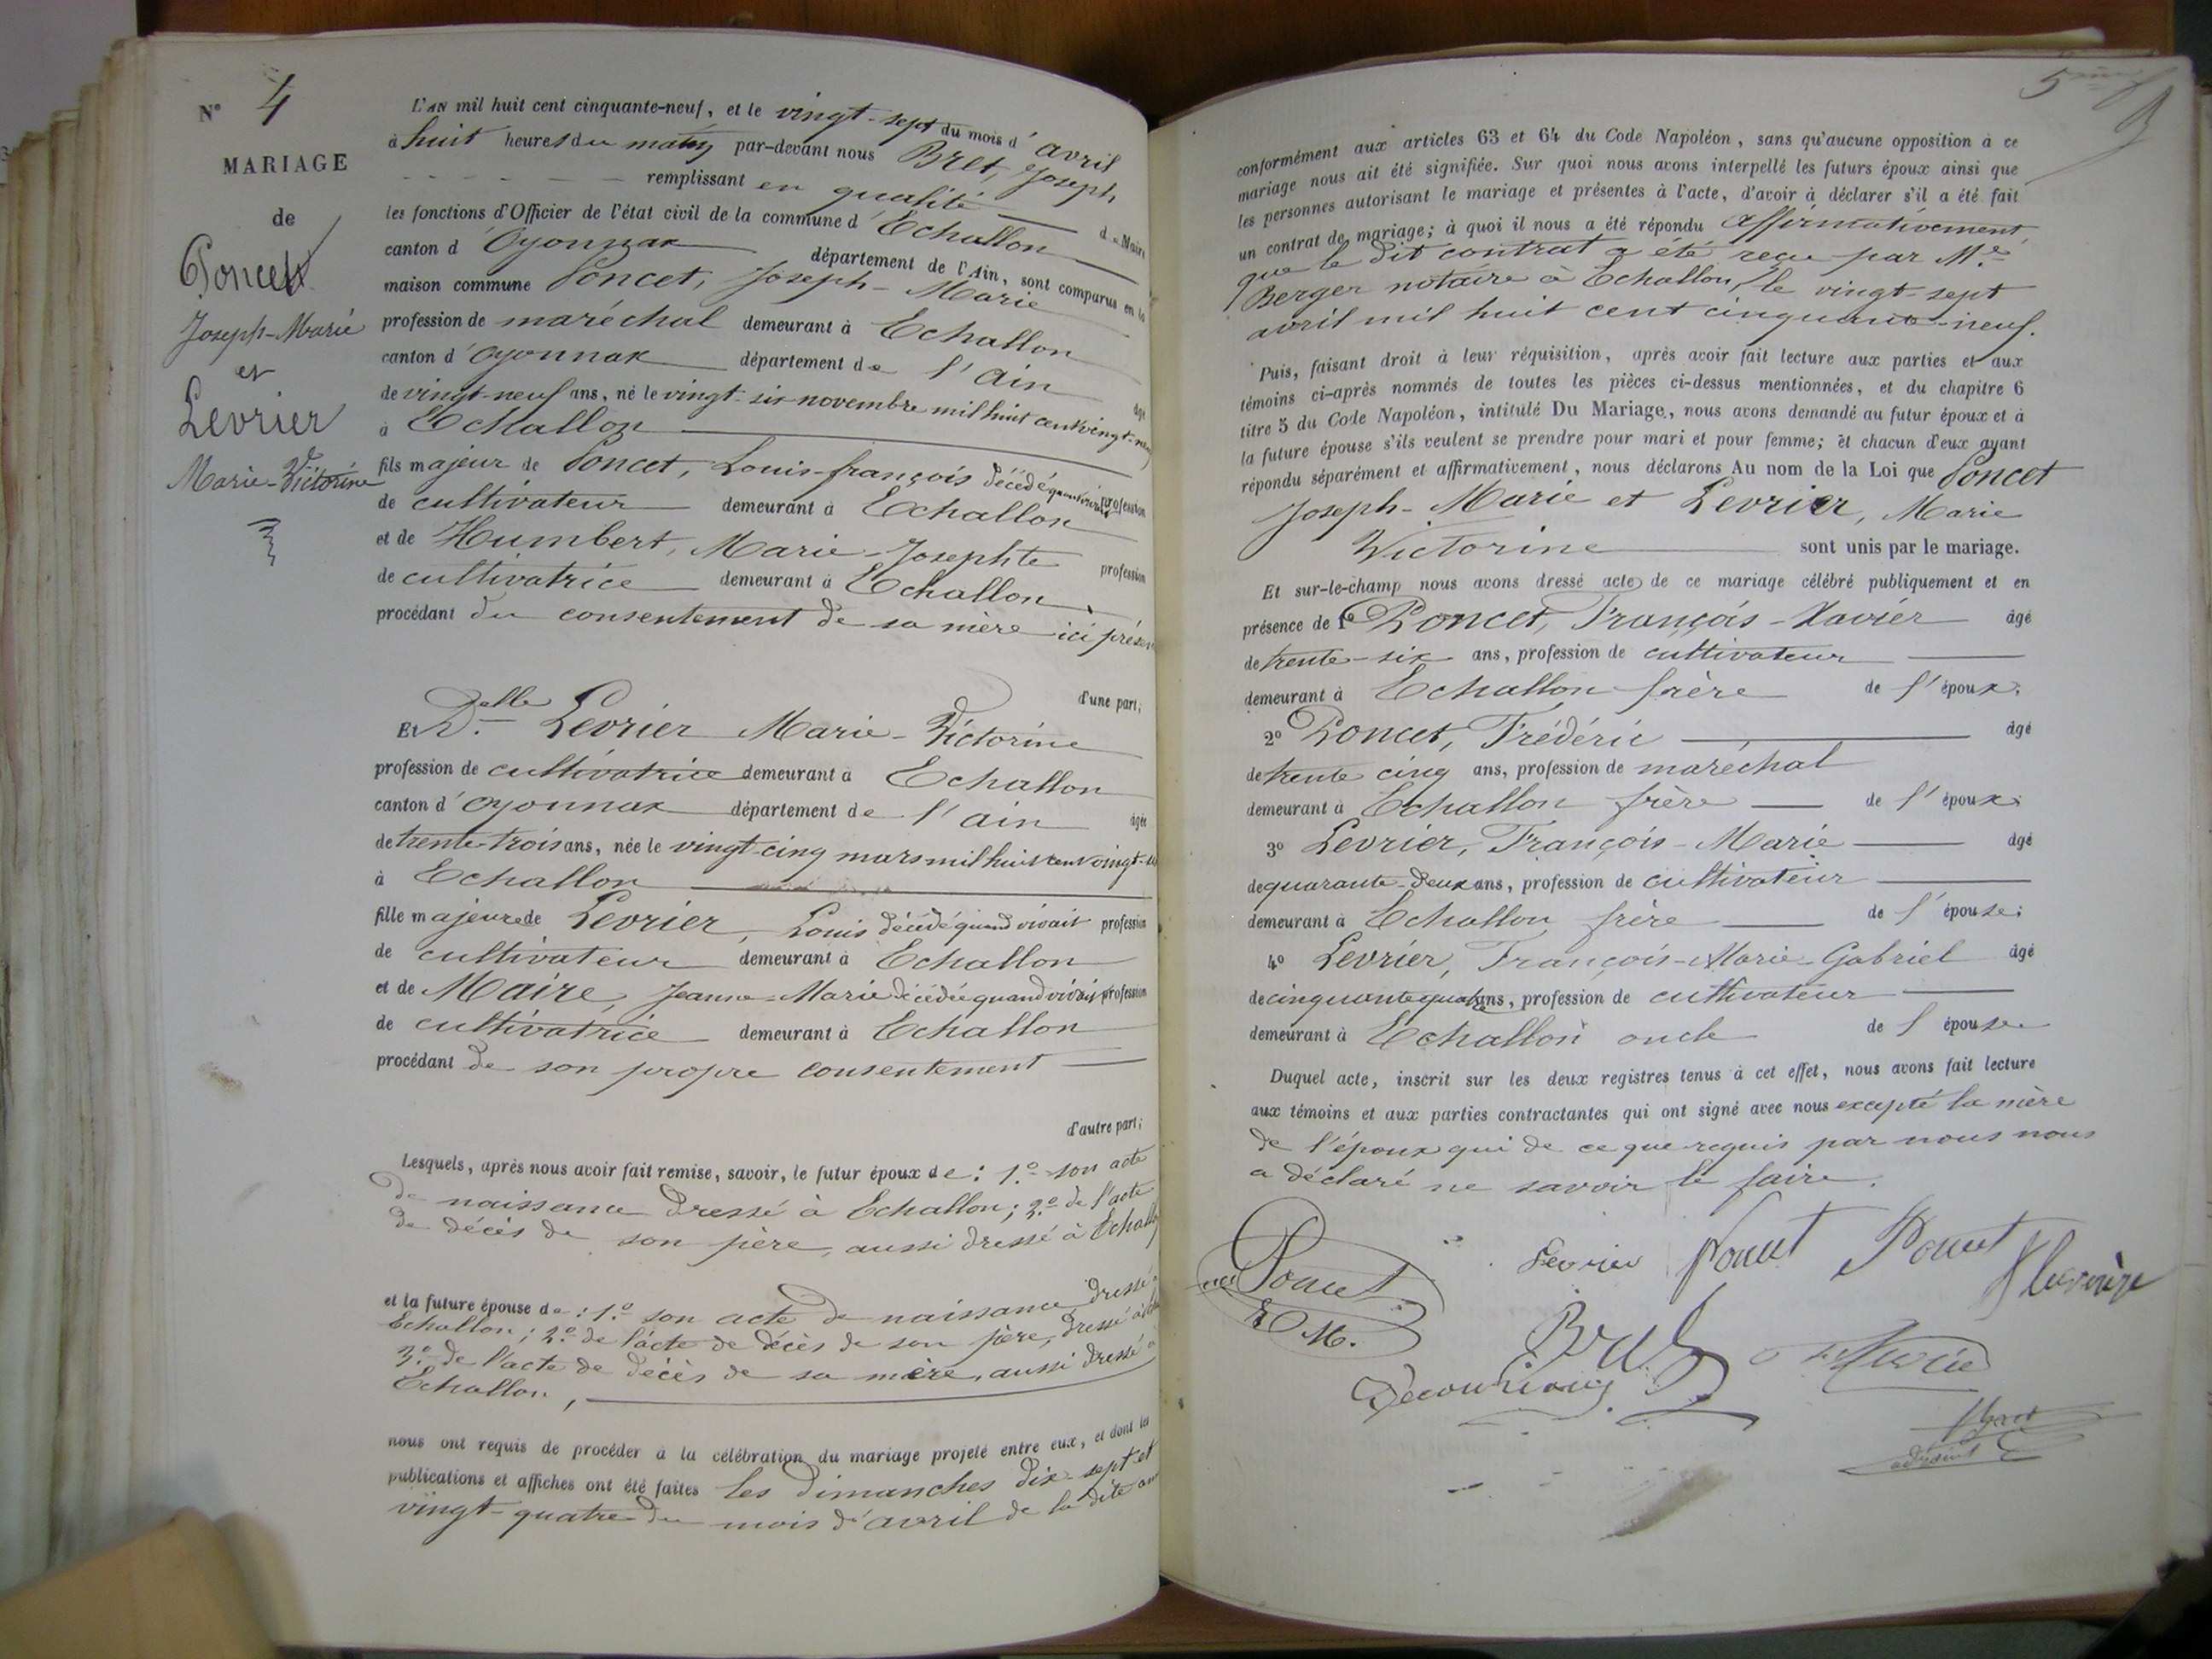 N° 4
MARIAGE
de
Poncet
Joseph-Marie
et
Levrier
Marie-Victorine
L'AN mil huit cent cinquante-neuf, et le vingt-sept du mois d'avril
à huit heures du matin par-devant nous Bret, Joseph
remplissant en qualité de Maire
les fonctions d'Officier de l'état civil de la commune d'Echallon
canton d'Oyonnax département de l'Ain, sont comparus en la
maison commune Poncet, Joseph-Marie
profession de maréchal demeurant à Echallon
canton d'Oyonnax département de l'ain
âgé
de vingt-neuf ans, né le vingt-six novembre mil huit cent vingt-neuf
à Echallon
fils majeur de Poncet, Louis-françois décédé quand vivait profession
de cultivateur demeurant à Echallon
et de Humbert, Marie-Josephte profession
de cultivatrice demeurant à Echallon
procédant du consentement de sa mère ici présen
d'une part;
Et Delle Levrier Marie-Victorine
profession de cultivatrice demeurant à Echallon
canton d'Oyonnax département de l'ain âgée
de trente-trois ans, née le vingt-cinq mars mil huit cent vingt-
à Echallon
fille majeure de Levrier, Louis décédé quand vivait profession
de cultivateur demeurant à Echallon
et de Maire, Jeanne-Marie décédée quand vivait profession
de cultivatrice demeurant à Echallon
procédant de son propre consentement
d'autre part;
Lesquels, après nous avoir fait remise, savoir, le futur époux de : 1.° son acte
de naissance dressé à Echallon; 2.° de l'acte
de décès de son père, aussi dressé à Echallon
et la future épouse de : 1.° son acte de naissance dressé à
Echallon; 2.° de l'acte de décès de son père, dressé à
3.° de l'acte de décès de sa mère, aussi dressé à
Echallon,
nous ont requis de procéder à la célébration du mariage projeté entre eux, et dont les
publications et affiches ont été faites les dimanches dix-sept et
vingt-quatre du mois d'avril de la dite
conformément aux articles 63 et 64 du Code Napoléon, sans qu'aucune opposition à ce
mariage nous ait été signifiée. Sur quoi nous avons interpellé les futurs époux ainsi que
les personnes autorisant le mariage et présentes à l'acte, d'avoir à déclarer s'il a été fait
un contrat de mariage; à quoi il nous a été répondu affirmativement,
que le dit contrat a été reçu par Me
Berger notaire à Echallon, le vingt-sept
avril mil huit cent cinquante-neuf.
Puis, faisant droit à leur réquisition, après avoir fait lecture aux parties et aux
témoins ci-après nommés de toutes les pièces ci-dessus mentionnées, et du chapitre 6
titre 5 du Code Napoléon, intitulé Du Mariage, nous avons demandé au futur époux et à
la future épouse s'ils veulent se prendre pour mari et pour femme; et chacun d'eux ayant
répondu séparément et affirmativement, nous déclarons Au nom de la Loi que Poncet
Joseph-Marie et Levrier, Marie
Victorine sont unis par le mariage.
Et sur-le-champ nous avons dressé acte de ce mariage célébré publiquement et en
présence de 1° Poncet, François-Xavier âgé
de trente-six ans, profession de cultivateur
demeurant à Echallon frère de l'époux;
2° Poncet, Frédéric âgé
de trente cinq ans, profession de maréchal
demeurant à Echallon frère de l'époux;
3° Levrier, François-Marie âgé
de quarante-deux ans, profession de cultivateur
demeurant à Echallon frère de l'épouse;
4° Levrier, François-Marie-Gabriel âgé
de cinquante quatre ans, profession de cultivateur
demeurant à Echallon oncle de l'épouse
Duquel acte, inscrit sur les deux registres tenus à cet effet, nous avons fait lecture
aux témoins et aux parties contractantes qui ont signé avec nous excepté la mère
de l'époux qui de ce que requis par nous nous
a déclaré ne savoir le faire.
Levrier Poncet Poncet
Poncet
Bret
adjoint